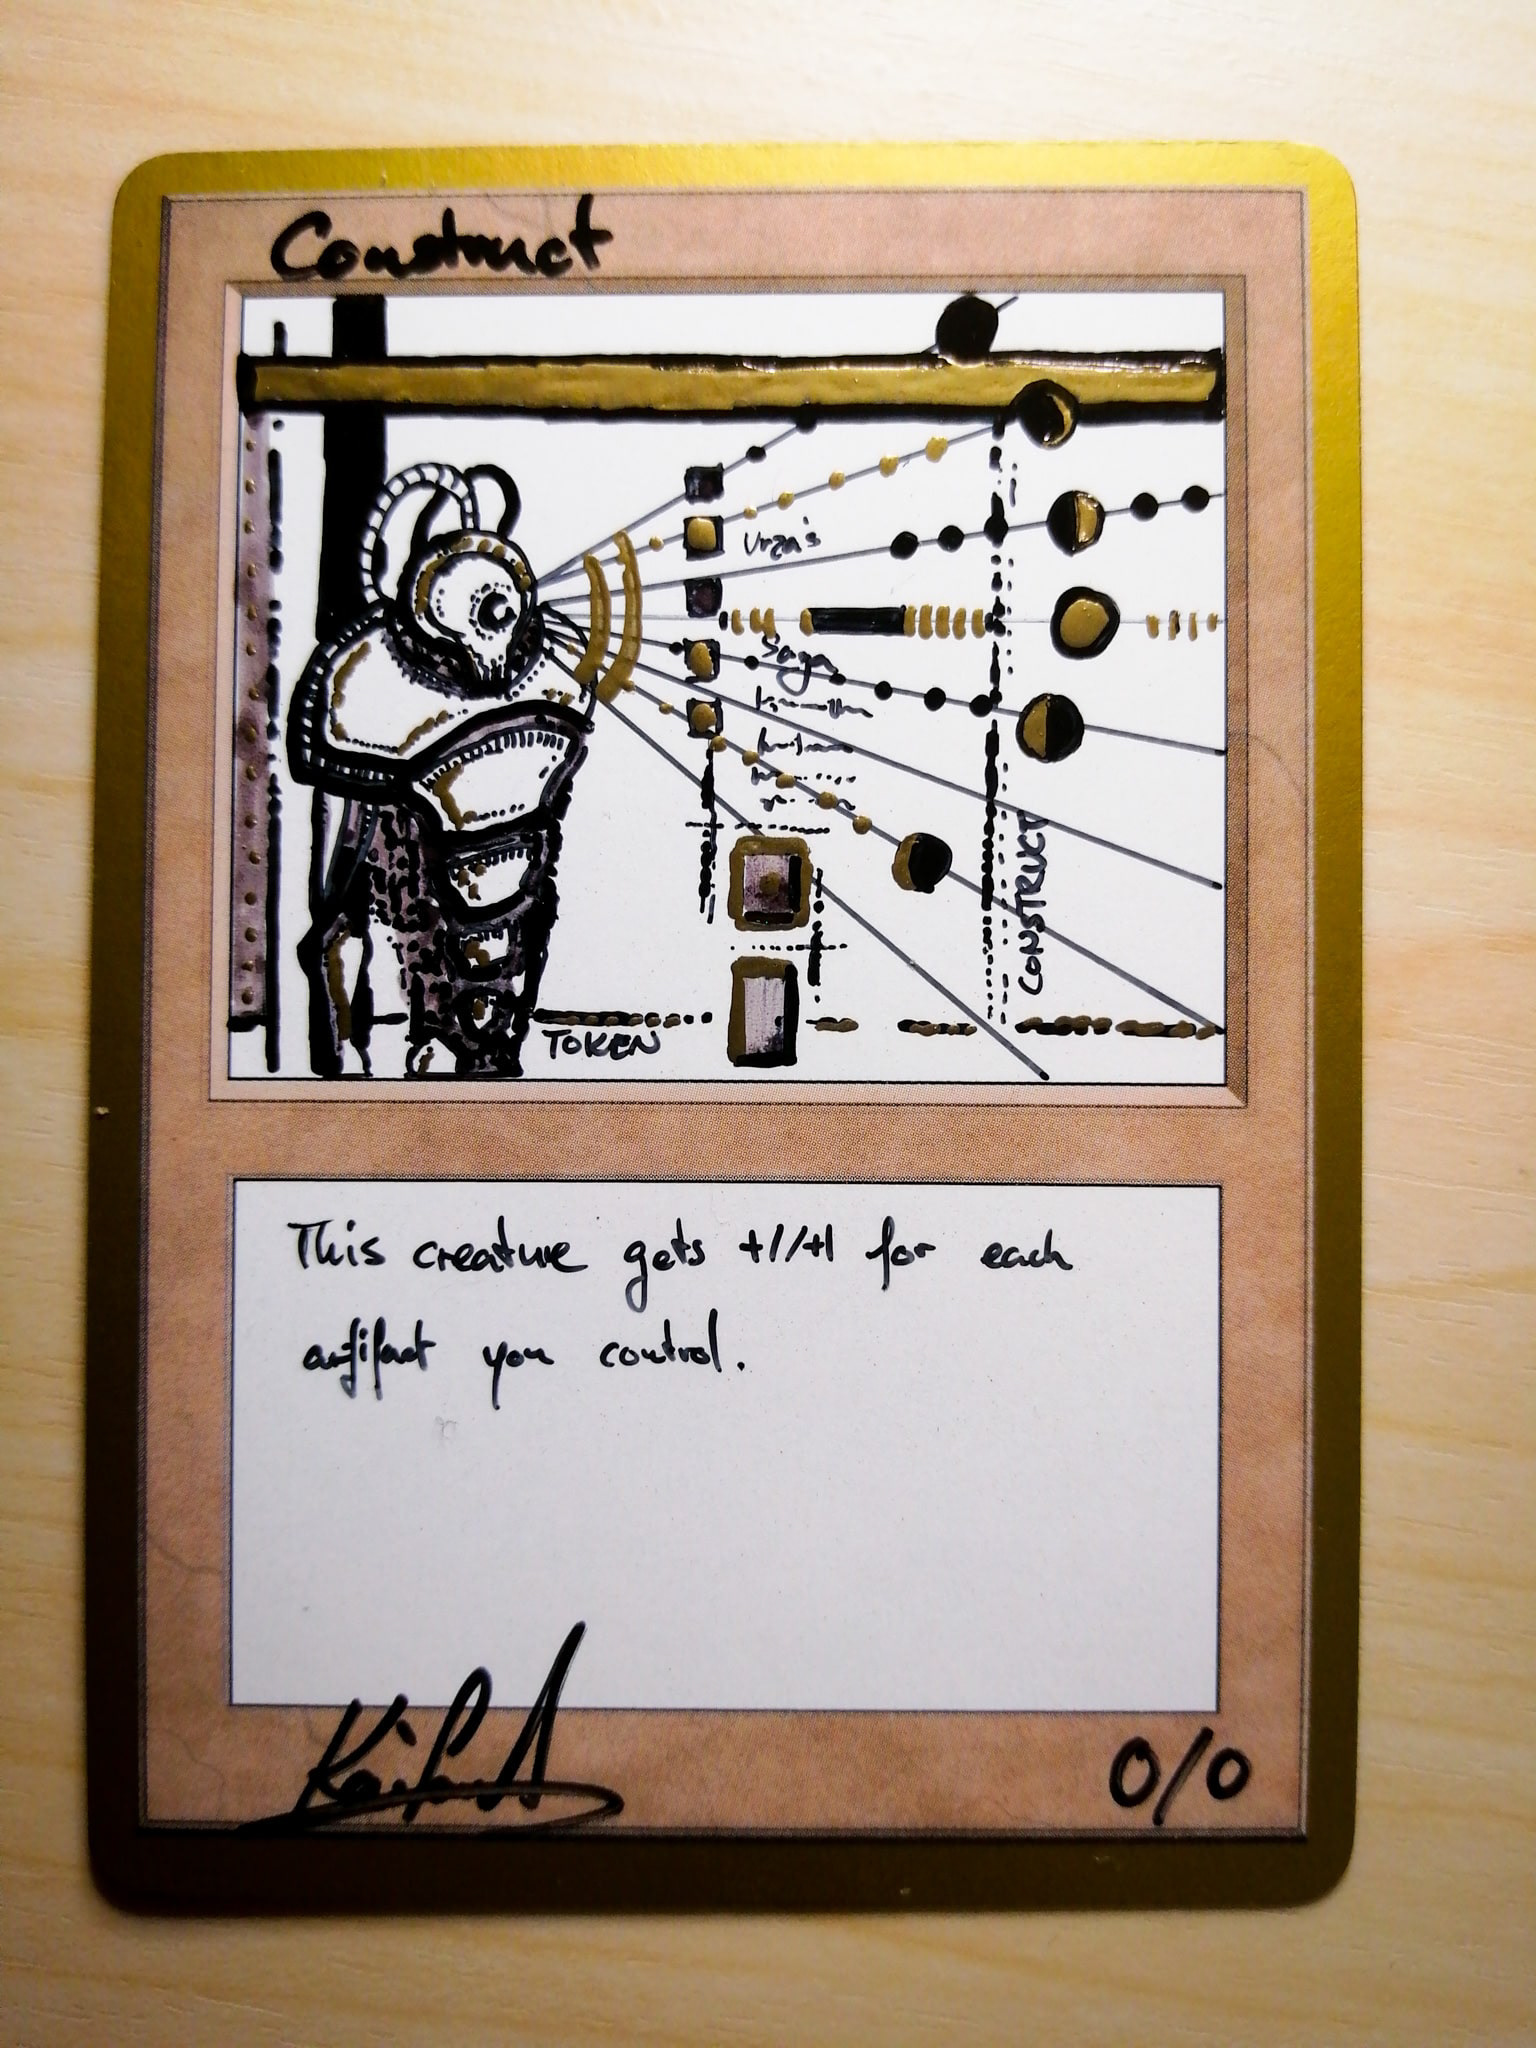 Construct
Urza's
Saga
CONSTRUCT
TOKEN
This creature gets +1/+1 for each
artifact you control.
0/0